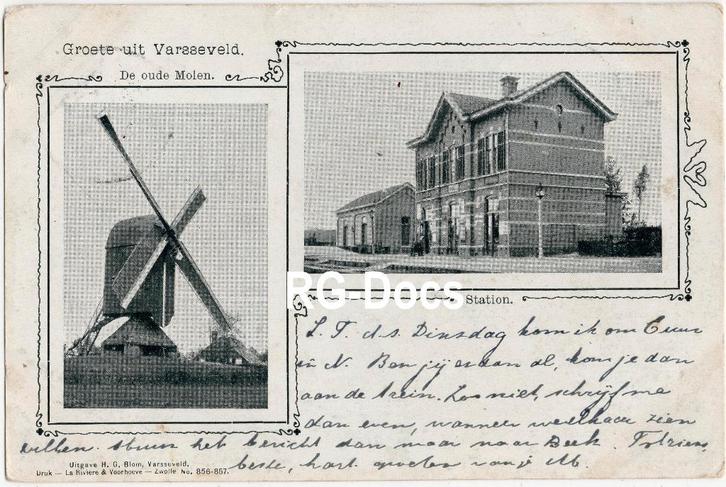 Groete uit Varsseveld.
De oude Molen.
RG-Docs
Station.
L. T. d.s. Dinsdag kom ik om uur
in N. Ben jij er dan al, kom je dan
aan de trein. Zoo niet, schrijf me
dan even, wanneer we elkaar zien
willen. Stuur het bericht dan maar naar Beek.
beste, hart. groeten van je M.
Uitgave H. G. Blom, Varsseveld.
Druk — La Rivière & Voorhoeve — Zwolle No. 856-857.